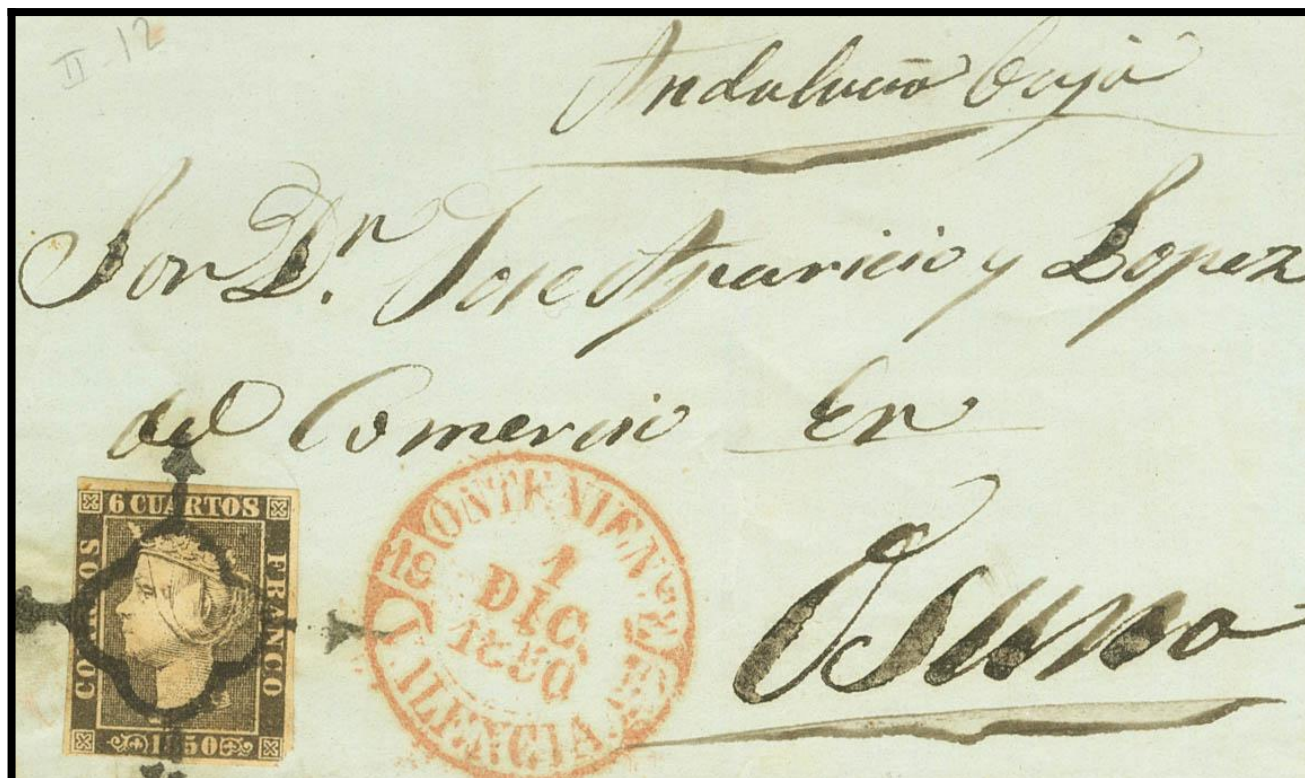 II-12
Andalucia baja
Sor Dn. Jose Aparicio y Lopez
del Comercio En
Osuna
6 CUARTOS
CORREOS
FRANCO
1850
ONTENIENTE
19
1
DIC.
1850